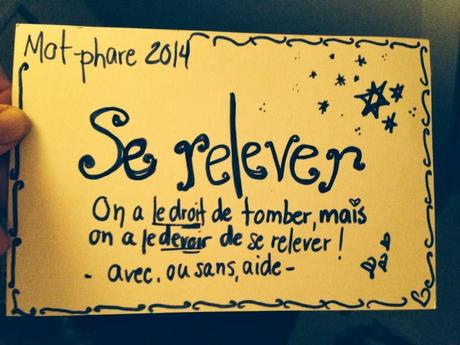 Mot-phare 2014
Se relever
On a le droit de tomber, mais
on a le devoir de se relever !
- avec, ou sans, aide -